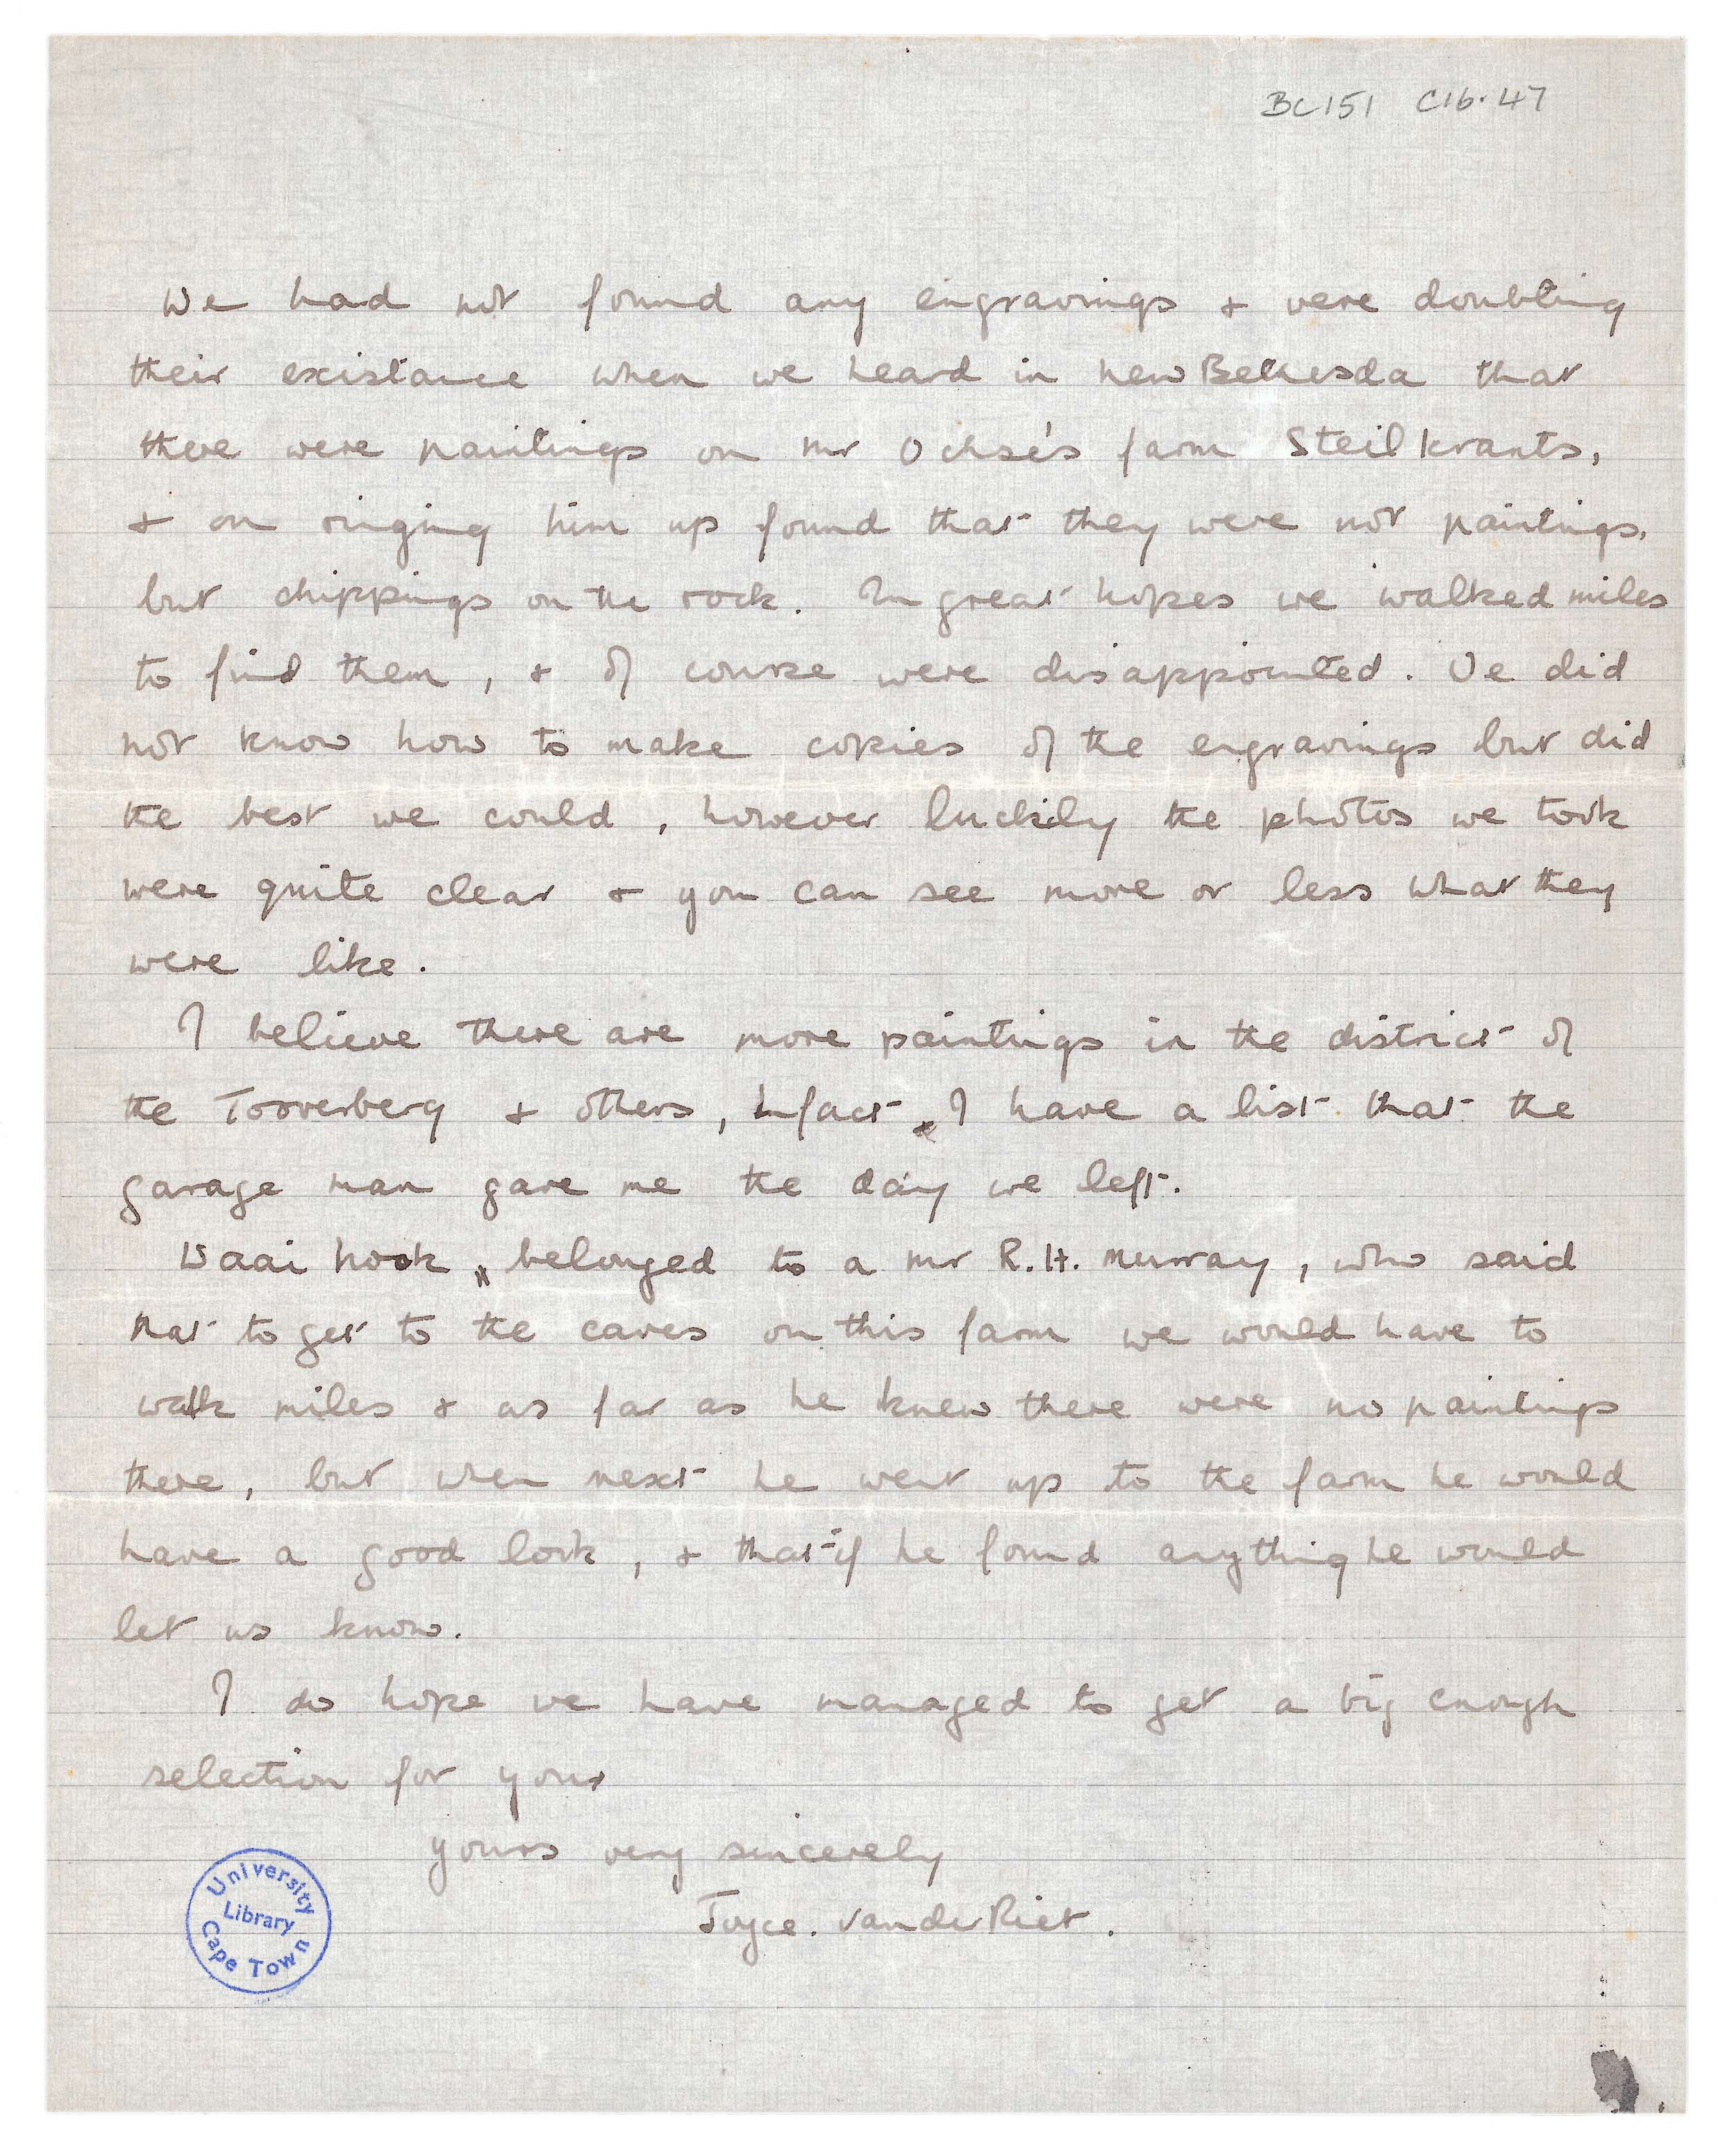 BC151 C16.47
We had not found any engravings & were doubting
their existance when we heard in new Bethesda that
there were paintings on Mr Ochse's farm Steilkrants,
& on ringing him up found that they were not paintings,
but chippings on the rock. In great hopes we walked miles
to find them, & of course were disappointed. We did
not know how to make copies of the engravings but did
the best we could, however luckily the photos we took
were quite clear & you can see more or less what they
were like.
I believe there are more paintings in the district of
the Tooverberg & others, infact, I have a list that the
garage man gave me the day we left.
Waai hoek, belonged to a Mr R.H. Murray, who said
that to get to the caves on this farm we would have to
walk miles & as far as he knew there were no paintings
there, but when next he went up to the farm he would
have a good look, & that if he found anything he would
let us know.
I do hope we have managed to get a big enough
selection for you
yours very sincerely
Joyce. van der Riet.
University
Library
Cape Town